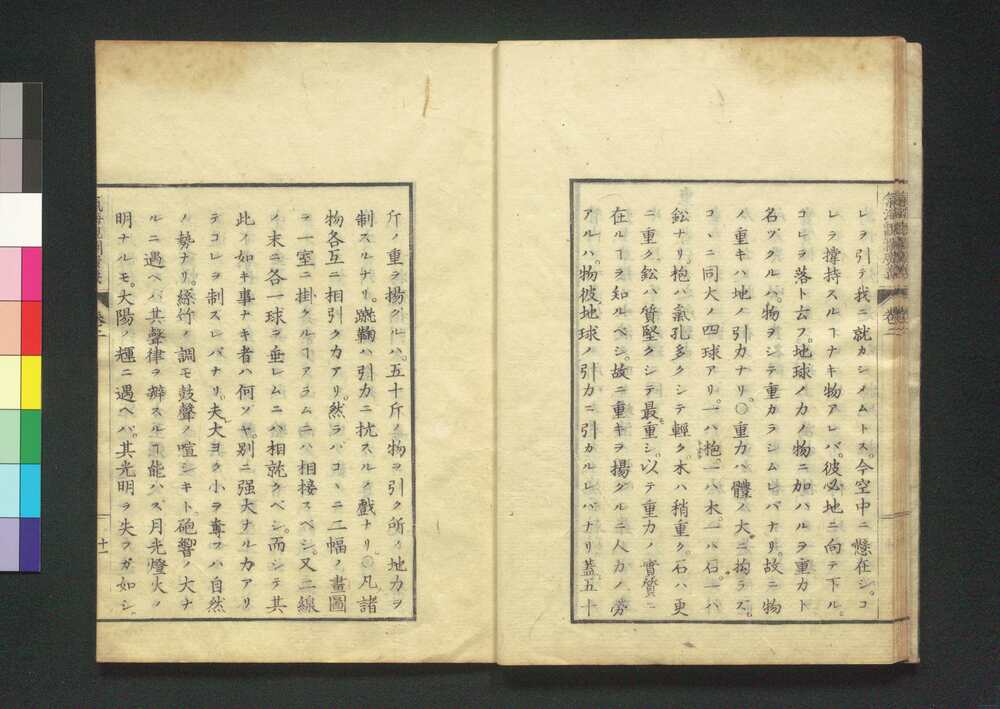 レヲ引テ我ニ就カシメムトス。今空中ニ懸在シ。コ
レヲ撑持スルヿナキ物アレバ。彼必地ニ向テ下ル。
コレヲ落ト云フ。地球ノ力ノ物ニ加ハルヲ重力ト
名ヅクルハ。物ヲシテ重カラシムレバナリ。故ニ物
ノ重キハ地ノ引力ナリ。〇重力ハ體ノ大ニ拘ラズ。
コヽニ同大ノ四球アリ。一ハ抱。一ハ木。一ハ石。一ハ
鈆ナリ。抱ハ氣孔多クシテ輕ク。木ハ稍重ク。石ハ更
ニ重ク。鈆ハ質堅クシテ最重シ。以テ重力ノ實質ニ
在ルヿヲ知ルベシ。故ニ重キヲ揚グルニ人力ノ勞
アルハ。物彼地球ノ引力ニ引カルレバナリ。蓋五十
斤ノ重ヲ揚グルハ。五十斤ノ物ヲ引ク所ノ地力ヲ
制スルナリ。蹴鞠ハ引力ニ抗スルノ戲ナリ。〇凡諸
物各互ニ相引ク力アリ。然ラバコヽニ二幅ノ畫圖
ヲ一室ニ掛クルヿアラムニハ相接スベシ。又二線
ノ末ニ各一球ヲ垂レムニハ相就クベシ。而シテ其
此ノ如キ事ナキ者ハ何ゾヤ。別ニ强大ナル力アリ
テコレヲ制スレバナリ。夫大ヨク小ヲ奪フハ自然
ノ勢ナリ。絲竹ノ調モ鼓聲ノ喧シキト。砲響ノ大ナ
ルニ遇ヘバ其聲律ヲ辨スルヿ能ハズ。月光燈火ノ
明ナルモ。大陽ノ輝ニ遇ヘバ。其光明ヲ失フガ如シ。
卷二
十一